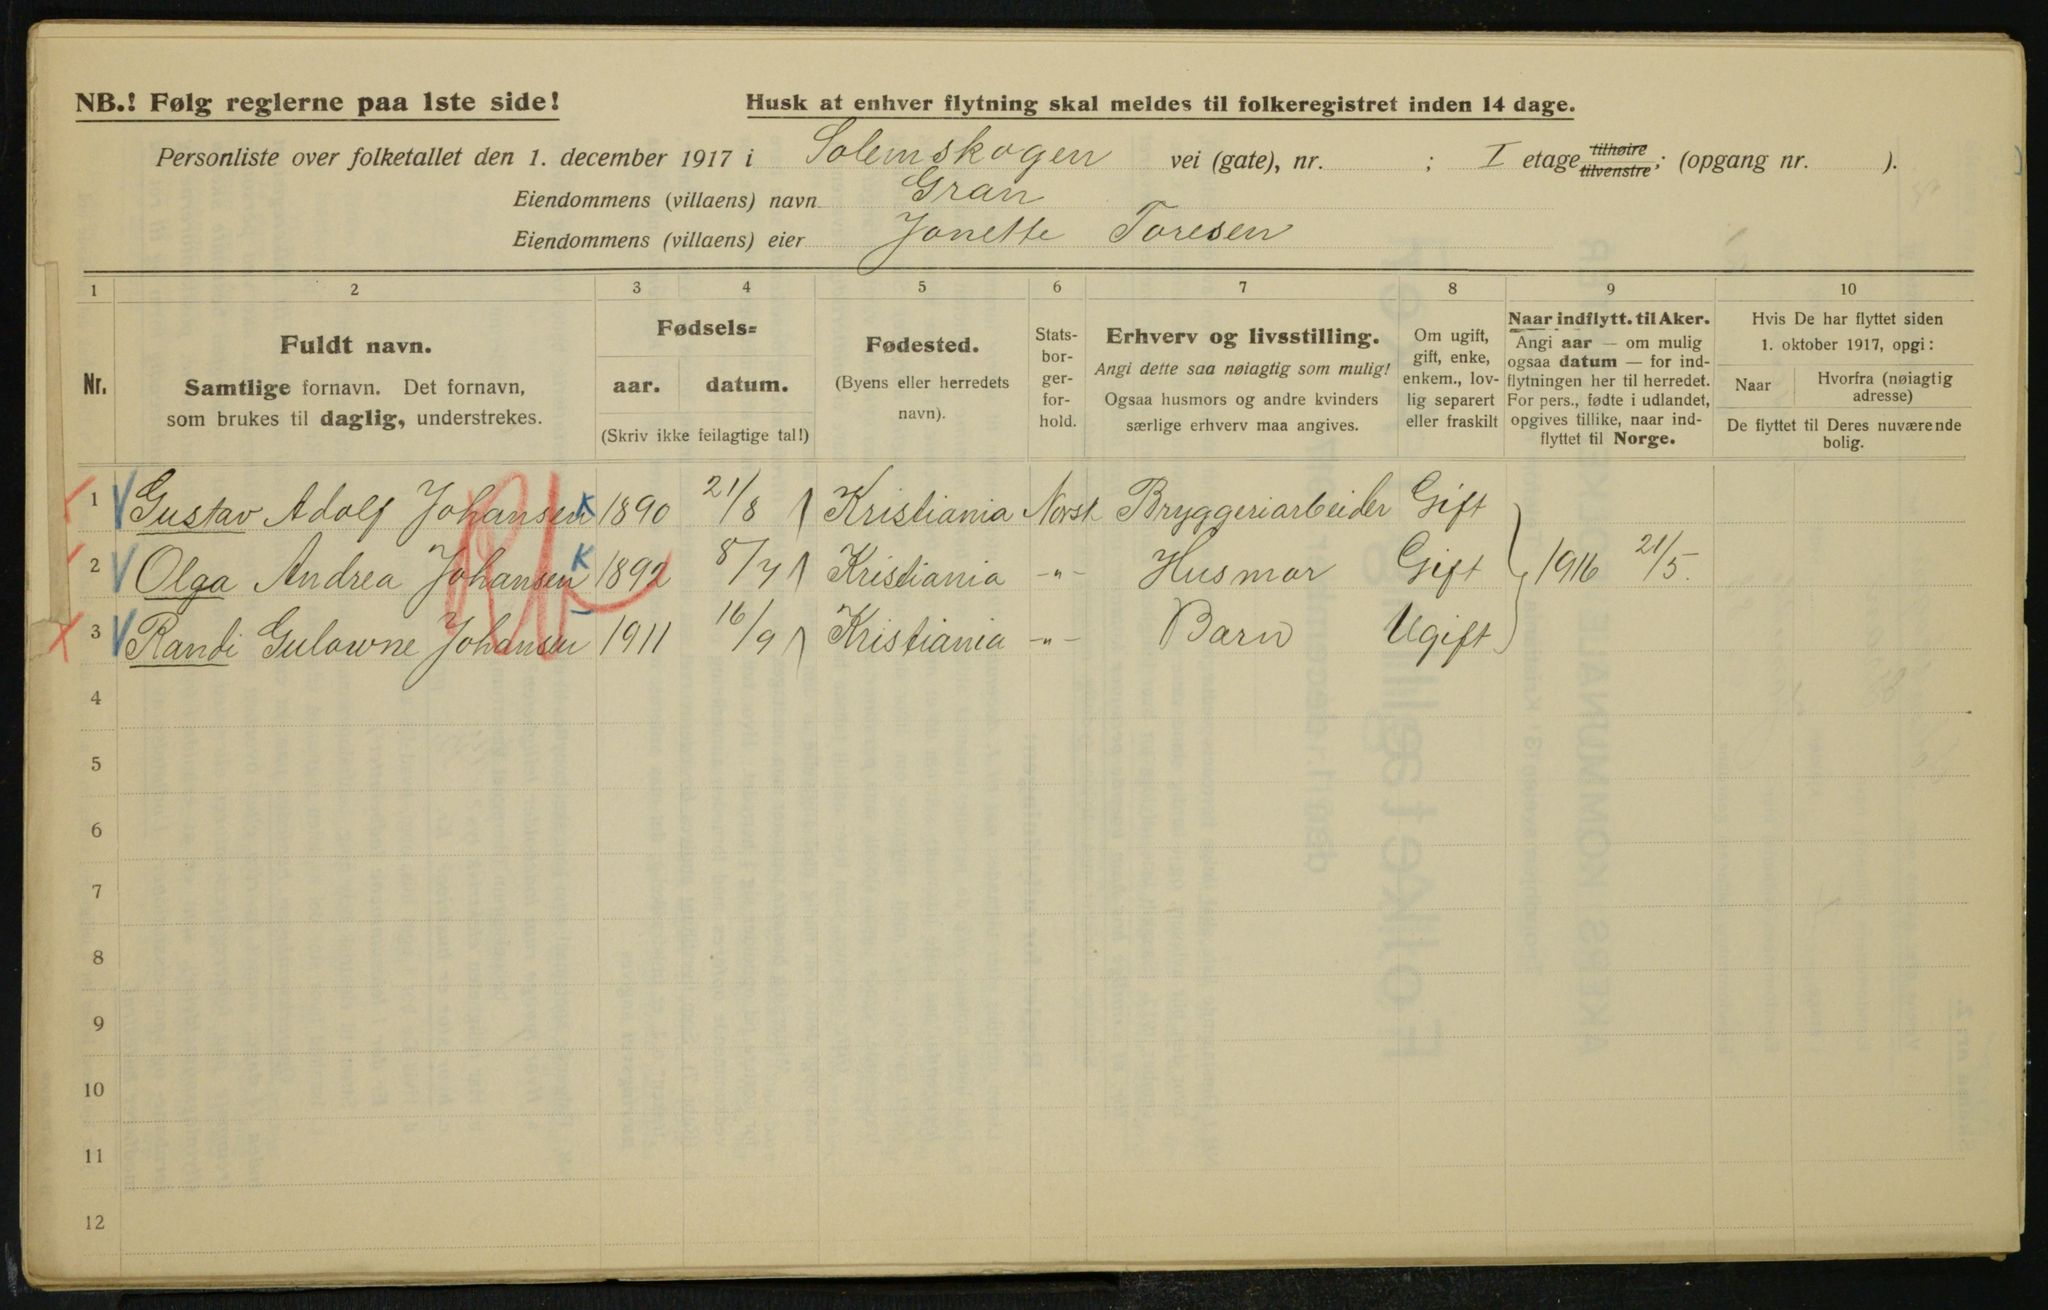 NB.! Følg reglerne paa 1ste side! Husk at enhver flytning skal meldes til folkeregistret inden 14 dage.
Personliste over folketallet den 1. december 1917 i Solemskogen vei (gate), nr. ; I etage tilhøire tilvenstre; (opgang nr. ).
Eiendommens (villaens) navn Gran
Eiendommens (villaens) eier Jonette Toresen
1 2 3 4 5 6 7 8 9 10
Nr.
Fuldt navn.
Samtlige fornavn. Det fornavn,
som brukes til daglig, understrekes.
Fødsels=
aar. datum.
(Skriv ikke feilagtige tal!)
Fødested.
(Byens eller herredets
navn).
Stats-
bor-
ger-
for-
hold.
Erhverv og livsstilling.
Angi dette saa nøiagtig som mulig!
Ogsaa husmors og andre kvinders
særlige erhverv maa angives.
Om ugift,
gift, enke,
enkem., lov-
lig separert
eller fraskilt
Naar indflytt. til Aker.
Angi aar — om mulig
ogsaa datum — for ind-
flytningen her til herredet.
For pers., fødte i udlandet,
opgives tillike, naar ind-
flyttet til Norge.
Hvis De har flyttet siden
1. oktober 1917, opgi:
Naar Hvorfra (nøiagtig
adresse)
De flyttet til Deres nuværende
bolig.
1 Gustav Adolf Johansen K 1890 21/8 Kristiania Norsk Bryggeriarbeider Gift
2 Olga Andrea Johansen K 1892 8/7 Kristiania -"- Husmor Gift 1916 21/5.
3 Randi Gulowne Johansen 1911 16/9 Kristiania -"- Barn Ugift
4
5
6
7
8
9
10
11
12